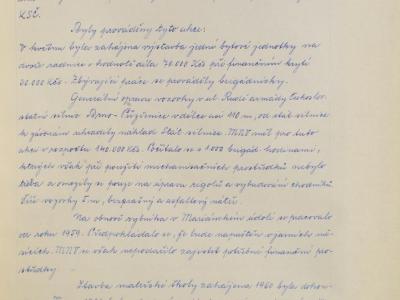 KSČ.
Byly prováděny tyto akce:
V květnu byla zahájena výstavba jedné bytové jednotky na
dvoře radnice v hodnotě díla 70.000 Kčs při finančním krytí
30.000 Kčs. Zbývající práce se prováděly brigádnicky.
Generální oprava vozovky v ul. Rudé armády Českoslo-
státní silnice Brno - v délce 110 m, od stát silnice
k uhradily náklad Stát silnice. MNV měl pro tuto
akci v rozpočtu 140.000 Kčs. Počítalo se s 1.000 brigád. hodinami,
kterých však při použití mechanisačních prostředků nebylo
třeba a omezily se pouze na úpravu rigolů a vybudování chodníků.
Šíře vozovky 5 m, bezprašný a asfaltový nátěr.
Na obnově rybníka v Mariánském údolí se pracovalo
od roku 1959. Předpokládalo se, že bude napuštěn v jarních mě-
sících. MNV se však nepodařilo zajistit potřebné finanční pro-
středky.
Stavba mateřské školy zahájena 1960 byla dokon-